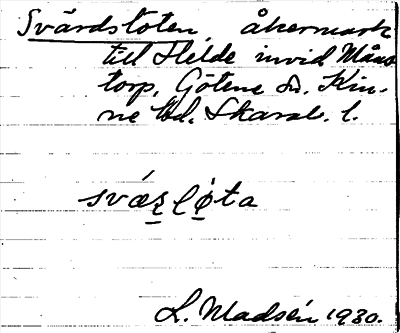 Svärdsloten, åkermark
till Helde invid Måns
torp, Götene sn. Kin-
ne hd. Skarab. l.
svæʀ́lø̀ta
L. Madsén 1930.